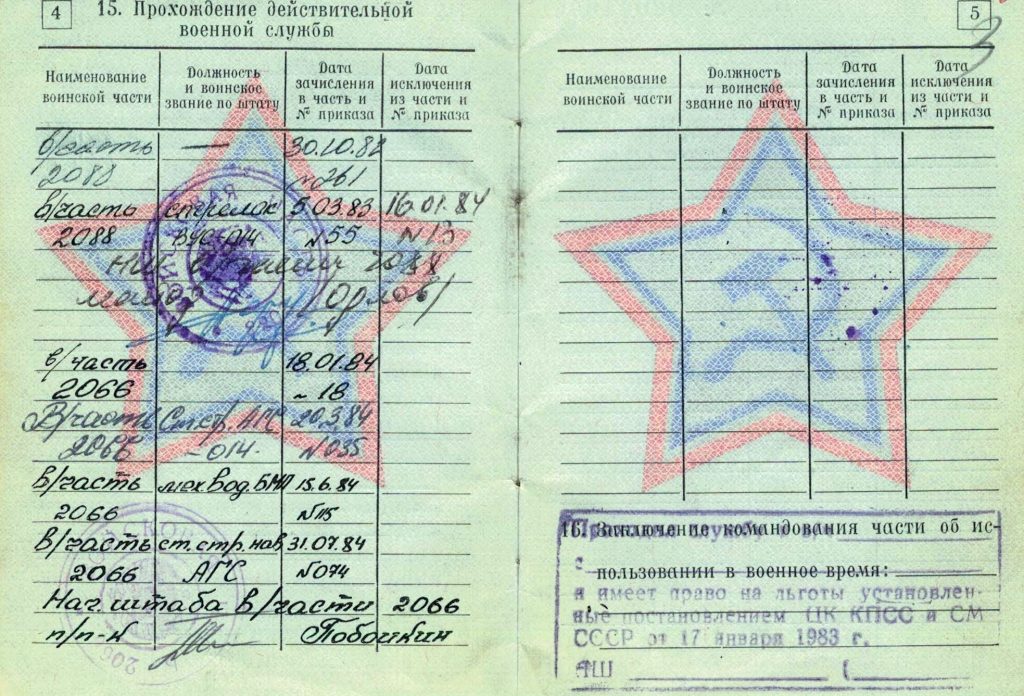 4
15. Прохождение действительной
военной службы
Наименование
воинской части
Должность
и воинское
звание по штату
Дата
зачисления
в часть и
№ приказа
Дата
исключения
из части и
№ приказа
в/часть — 30.10.82
2088 №261
в/часть стрелок 5.03.83 16.01.84
2088 ВУС-014 №55 N 13
2088
майор /Орлов/
в/часть 18.01.84
2066 ~ 18
В/часть Ст.стр. АГС 20.3.84
2066 -014- №035
В/часть мех.вод. БМП 15.6.84
2066 №115
В/часть ст.стр.нав 31.07.84
2066 АГС №074
Нач. штаба в/части 2066
п/п-к Побойкин
5
3
Наименование
воинской части
Должность
и воинское
звание по штату
Дата
зачисления
в часть и
№ приказа
Дата
исключения
из части и
№ приказа
16. Заключение командования части об ис-
пользовании в военное время:
с
и имеет право на льготы установлен-
ные постановлением ЦК КПСС и СМ
СССР от 17 января 1983 г.
НШ (